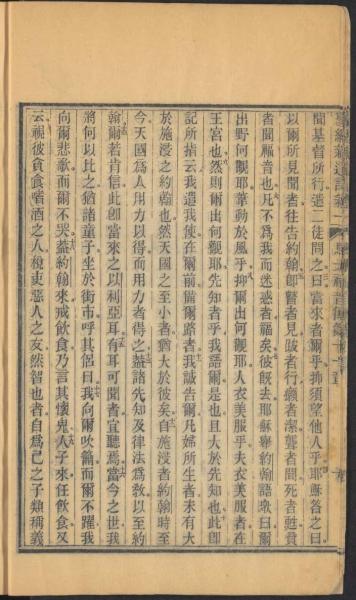 聞基督所行遣二徒問之曰當來者爾乎抑須望他人乎耶穌答之曰
以爾所見聞者往告約翰即瞽者見跛者行癩者潔聾者聞死者甦貧
者聞福音也凡不爲我而迷惑者福矣彼旣去耶穌舉約翰語衆曰爾
出野何觀耶葦動於風乎抑爾出何觀耶人衣美服乎夫衣美服者在
王宮也然則爾出何觀耶先知者乎我語爾是也且大於先知也此卽
記所指云我遣我使在爾前備爾路者我誠告爾凡婦所生者未有大
於施浸之約翰也然天國之至小者猶大於彼矣自施浸者約翰時至
今天國爲人用力以得而用力者得之蓋諸先知及律法爲敎以至約
翰爾若肯信此卽當來之以利亞耳有耳可聞者宜聽焉當今之世我
將何以比之猶諸童子坐於街市呼其侶曰我向爾吹籥而爾不躍我
向爾悲歌而爾不哭蓋約翰來戒飲食乃言其懷鬼人子來任飲食又
云視彼貪食嗜酒之人稅吏惡人之友然智也者自爲己之子類稱義